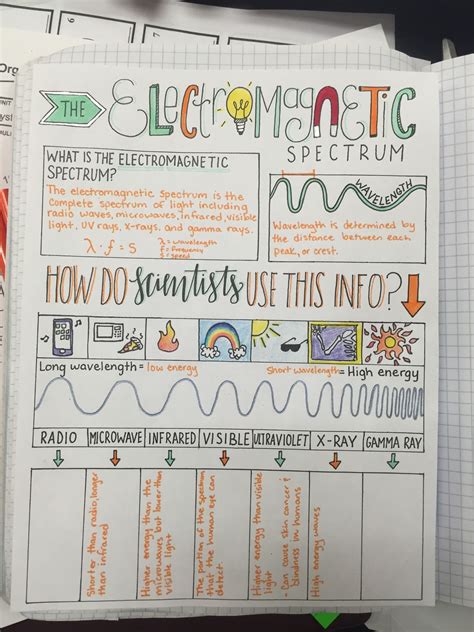 THE ELECTROMAGNETIC
SPECTRUM
WHAT IS THE ELECTROMAGNETIC
SPECTRUM?
The electromagnetic Spectrum is the
Complete spectrum of light including
radio waves, microwaves, infrared, visible
light, UV rays, x-rays, and gamma rays.
λ · f = S
λ = wavelength
f = frequency
S = speed
WAVELENGTH
Wavelength is determined by
the distance between each
peak, or crest.
HOW DO scientists USE THIS INFO?
Long wavelength = low energy
Short wavelength = High energy
RADIO
MICROWAVE
INFRARED
VISIBLE
ULTRAVIOLET
X-RAY
GAMMA RAY
Shorter than radio, longer
than infrared
Higher energy than the
microwaves but lower than
visible light
The portion of the spectrum
that the human eye can
detect
Higher energy than visible
light
- Can cause skin cancer &
blindness in humans
High energy waves